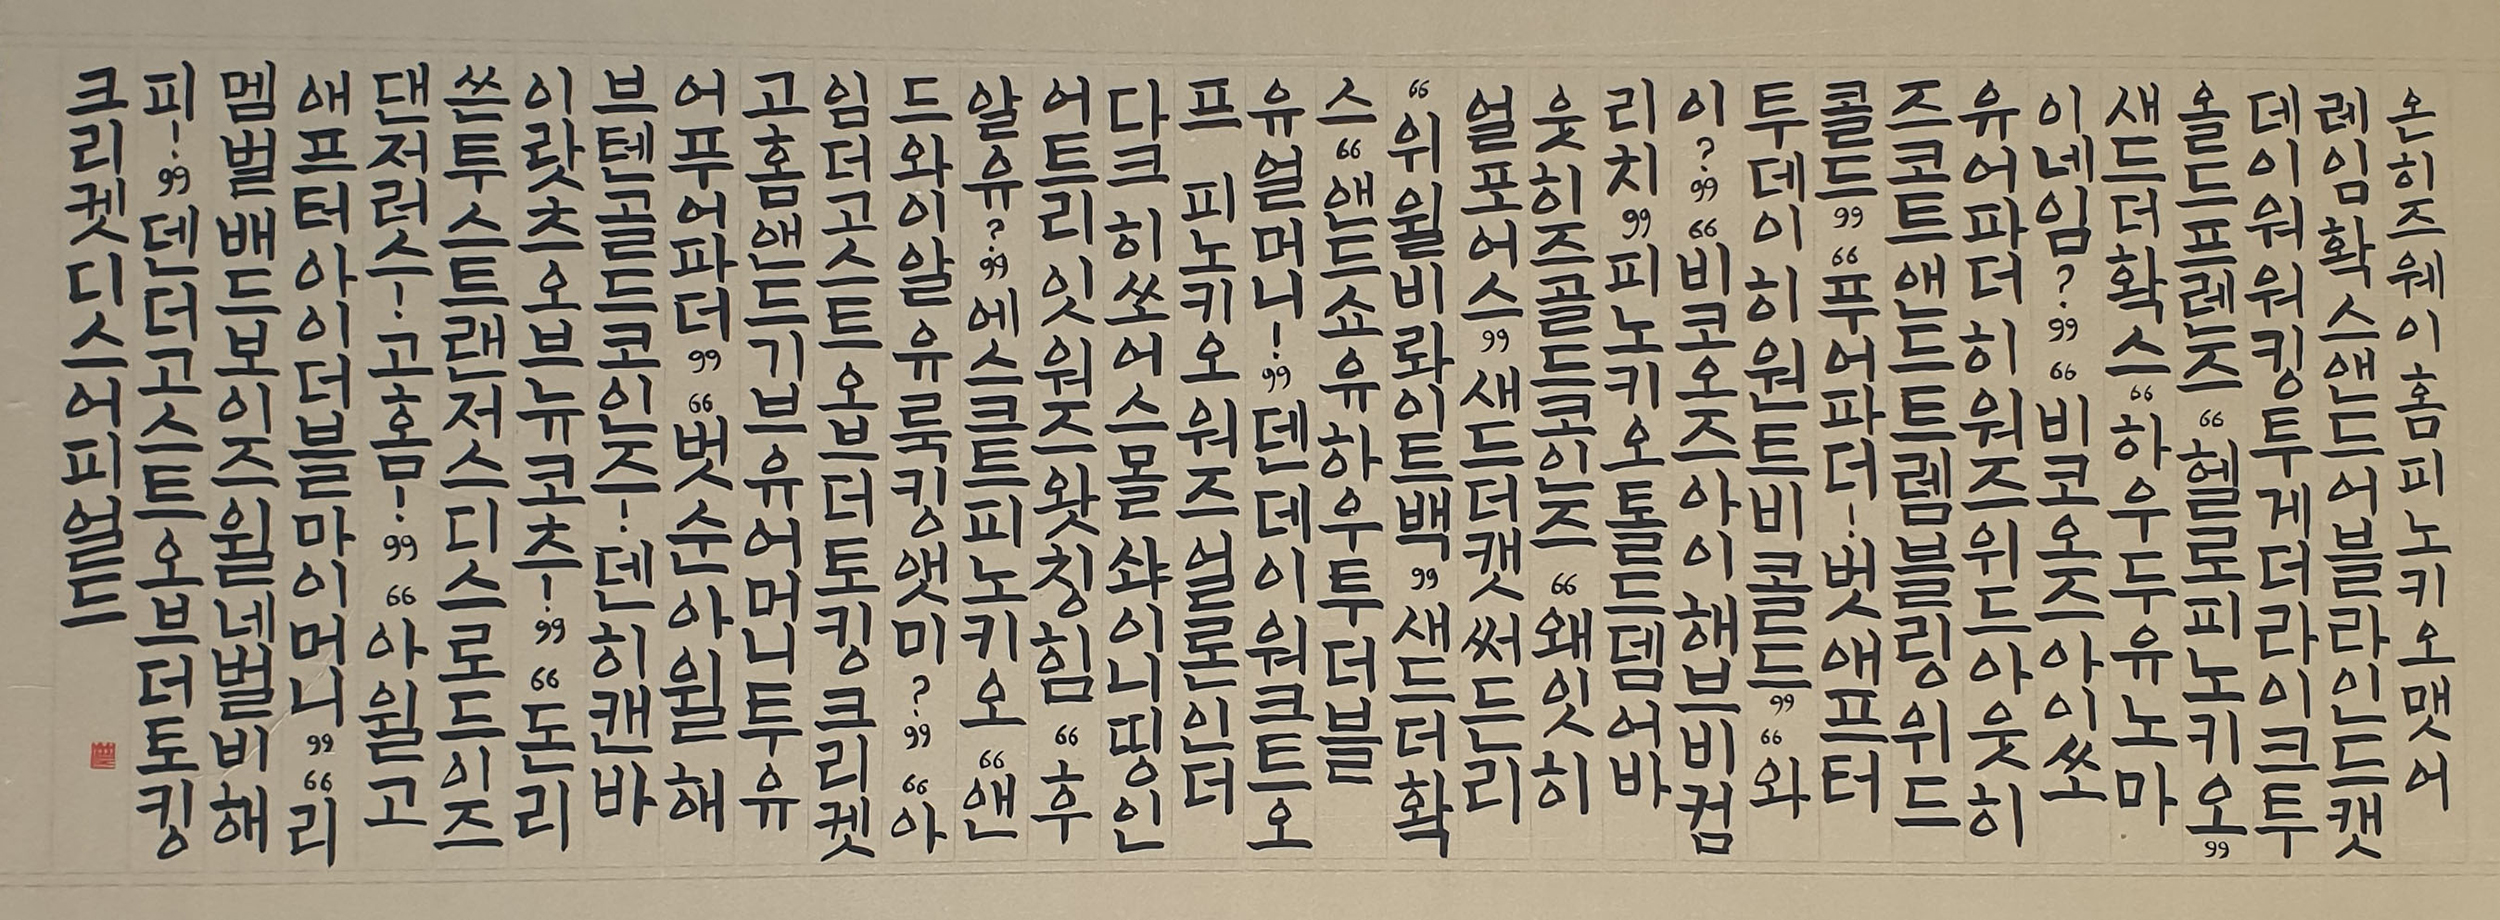 온히즈웨이홈피노키오맷어
레임확스앤드어블라인드캣
데이워워킹투게더라이크투
올드프렌즈 “헬로피노키오”
새드더확스 “하우두유노마
이네임?” “비코오즈아이쏘
유어파더 히워즈위드아웃히
즈코트앤드트렘블링위드
콜드” “푸어파더! 벗애프터
투데이히원트비콜드” “와
이?” “비코오즈아이해브비컴
리치” 피노키오톨드뎀어바
웃히즈골드코인즈 “왜잇히
얼포어스” 새드더캣써든리
“위윌비롸이트백” 새드더확
스 “앤드쇼유하우투더블
유얼머니!” 덴데이워크트오
프 피노키오워즈얼론인더
다크 히쏘어스몰샤이니띵인
어트리잇워즈왓칭힘 “후
알유?” 에스크트피노키오 “앤
드와이알유룩킹앳미?” “아
임더고스트오브더토킹크리켓
고홈앤드기브유어머니투유
어푸어파더” “벗순아윌해
브텐골드코인즈! 덴히캔바
이랏츠오브뉴코츠!” “돈리
쓴투스트랜저스디스로드이즈
댄저러스! 고홈!” “아윌고
애프터아이더블마이머니” “리
멤벌배드보이즈윌네벌비해
피!” 덴더고스트오브더토킹
크리켓디스어피얼드